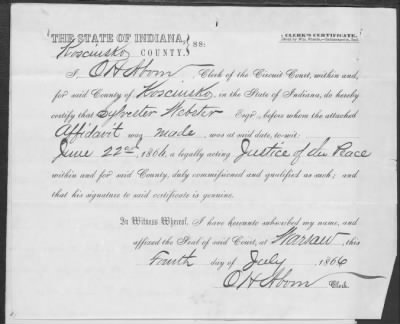 THE STATE OF INDIANA,
CLERK'S CERTIFICATE.
Kosciusko COUNTY. } SS:
I, O H Aborn Clerk of the Circuit Court, within and,
for said County of Kosciusko, in the State of Indiana, do hereby
certify that Sylvester Webster Esqr, before whom the attached
Affidavit was made, was at said date, to-wit:
June 22nd, 1866, a legally acting Justice of the Peace
within and for said County, duly commissioned and qualified as such; and
that his signature to said certificate is genuine.
In Witness Whereof, I have hereunto subscribed my name, and
affixed the Seal of said Court, at Warsaw, this
Fourth day of July 1866
O H Aborn Clerk.